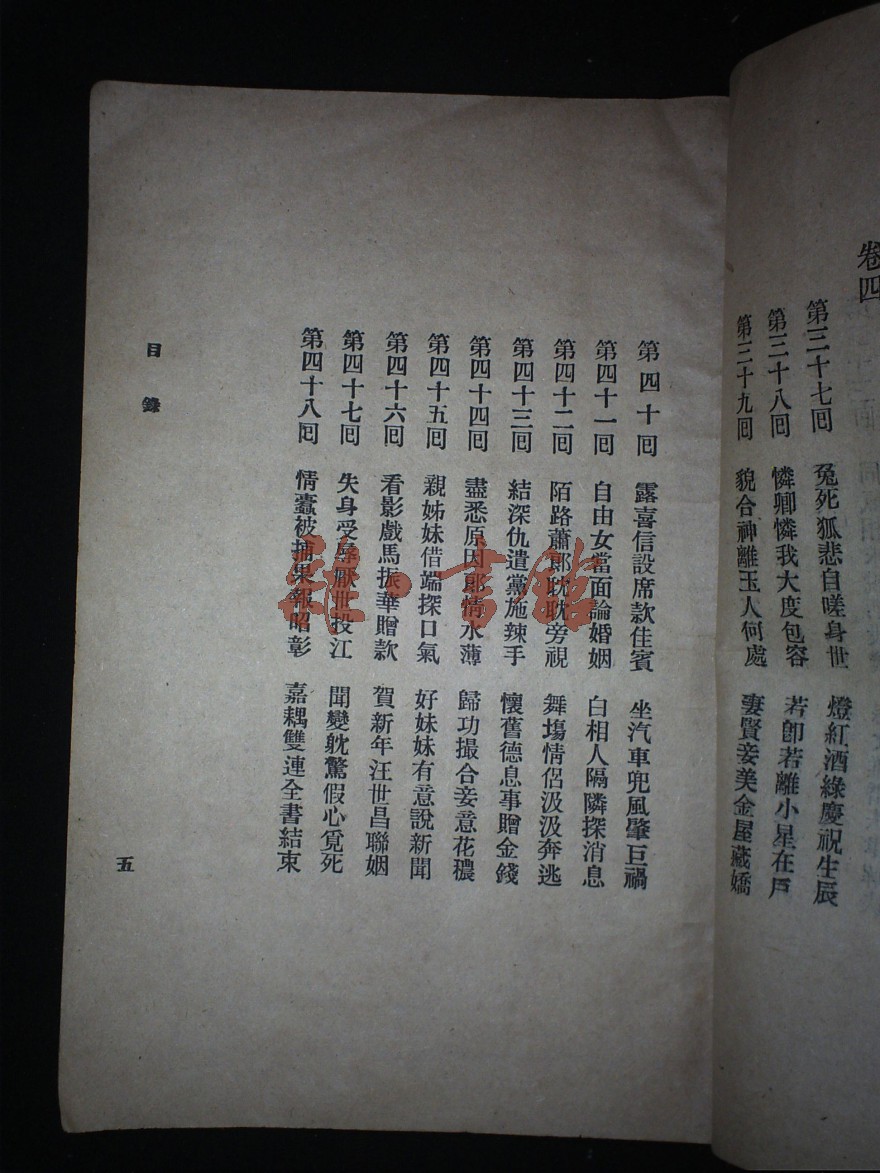 卷四
第三十七囘 兔死狐悲自嗟身世 燈紅酒綠慶祝生辰
第三十八囘 憐卿憐我大度包容 若卽若離小星在戶
第三十九囘 貌合神離玉人何處 妻賢妾美金屋藏嬌
第四十囘 露喜信設席款佳賓 坐汽車兜風肇巨禍
第四十一囘 自由女當面論婚姻 白相人隔隣探消息
第四十二囘 陌路蕭郎眈眈旁視 舞塲情侶汲汲奔逃
第四十三囘 結深仇遣黨施辣手 懷舊德息事贈金錢
第四十四囘 盡悉原因郎情水薄 歸功撮合妾意花穠
第四十五囘 親姊妹借端探口氣 好妹妹有意說新聞
第四十六囘 看影戲馬振華贈款 賀新年汪世昌聯姻
第四十七囘 失身受辱厭世投江 聞變躭驚假心覓死
第四十八囘 情蠹被捕果報昭彰 嘉耦雙連全書結束
目錄
五
雜·書館